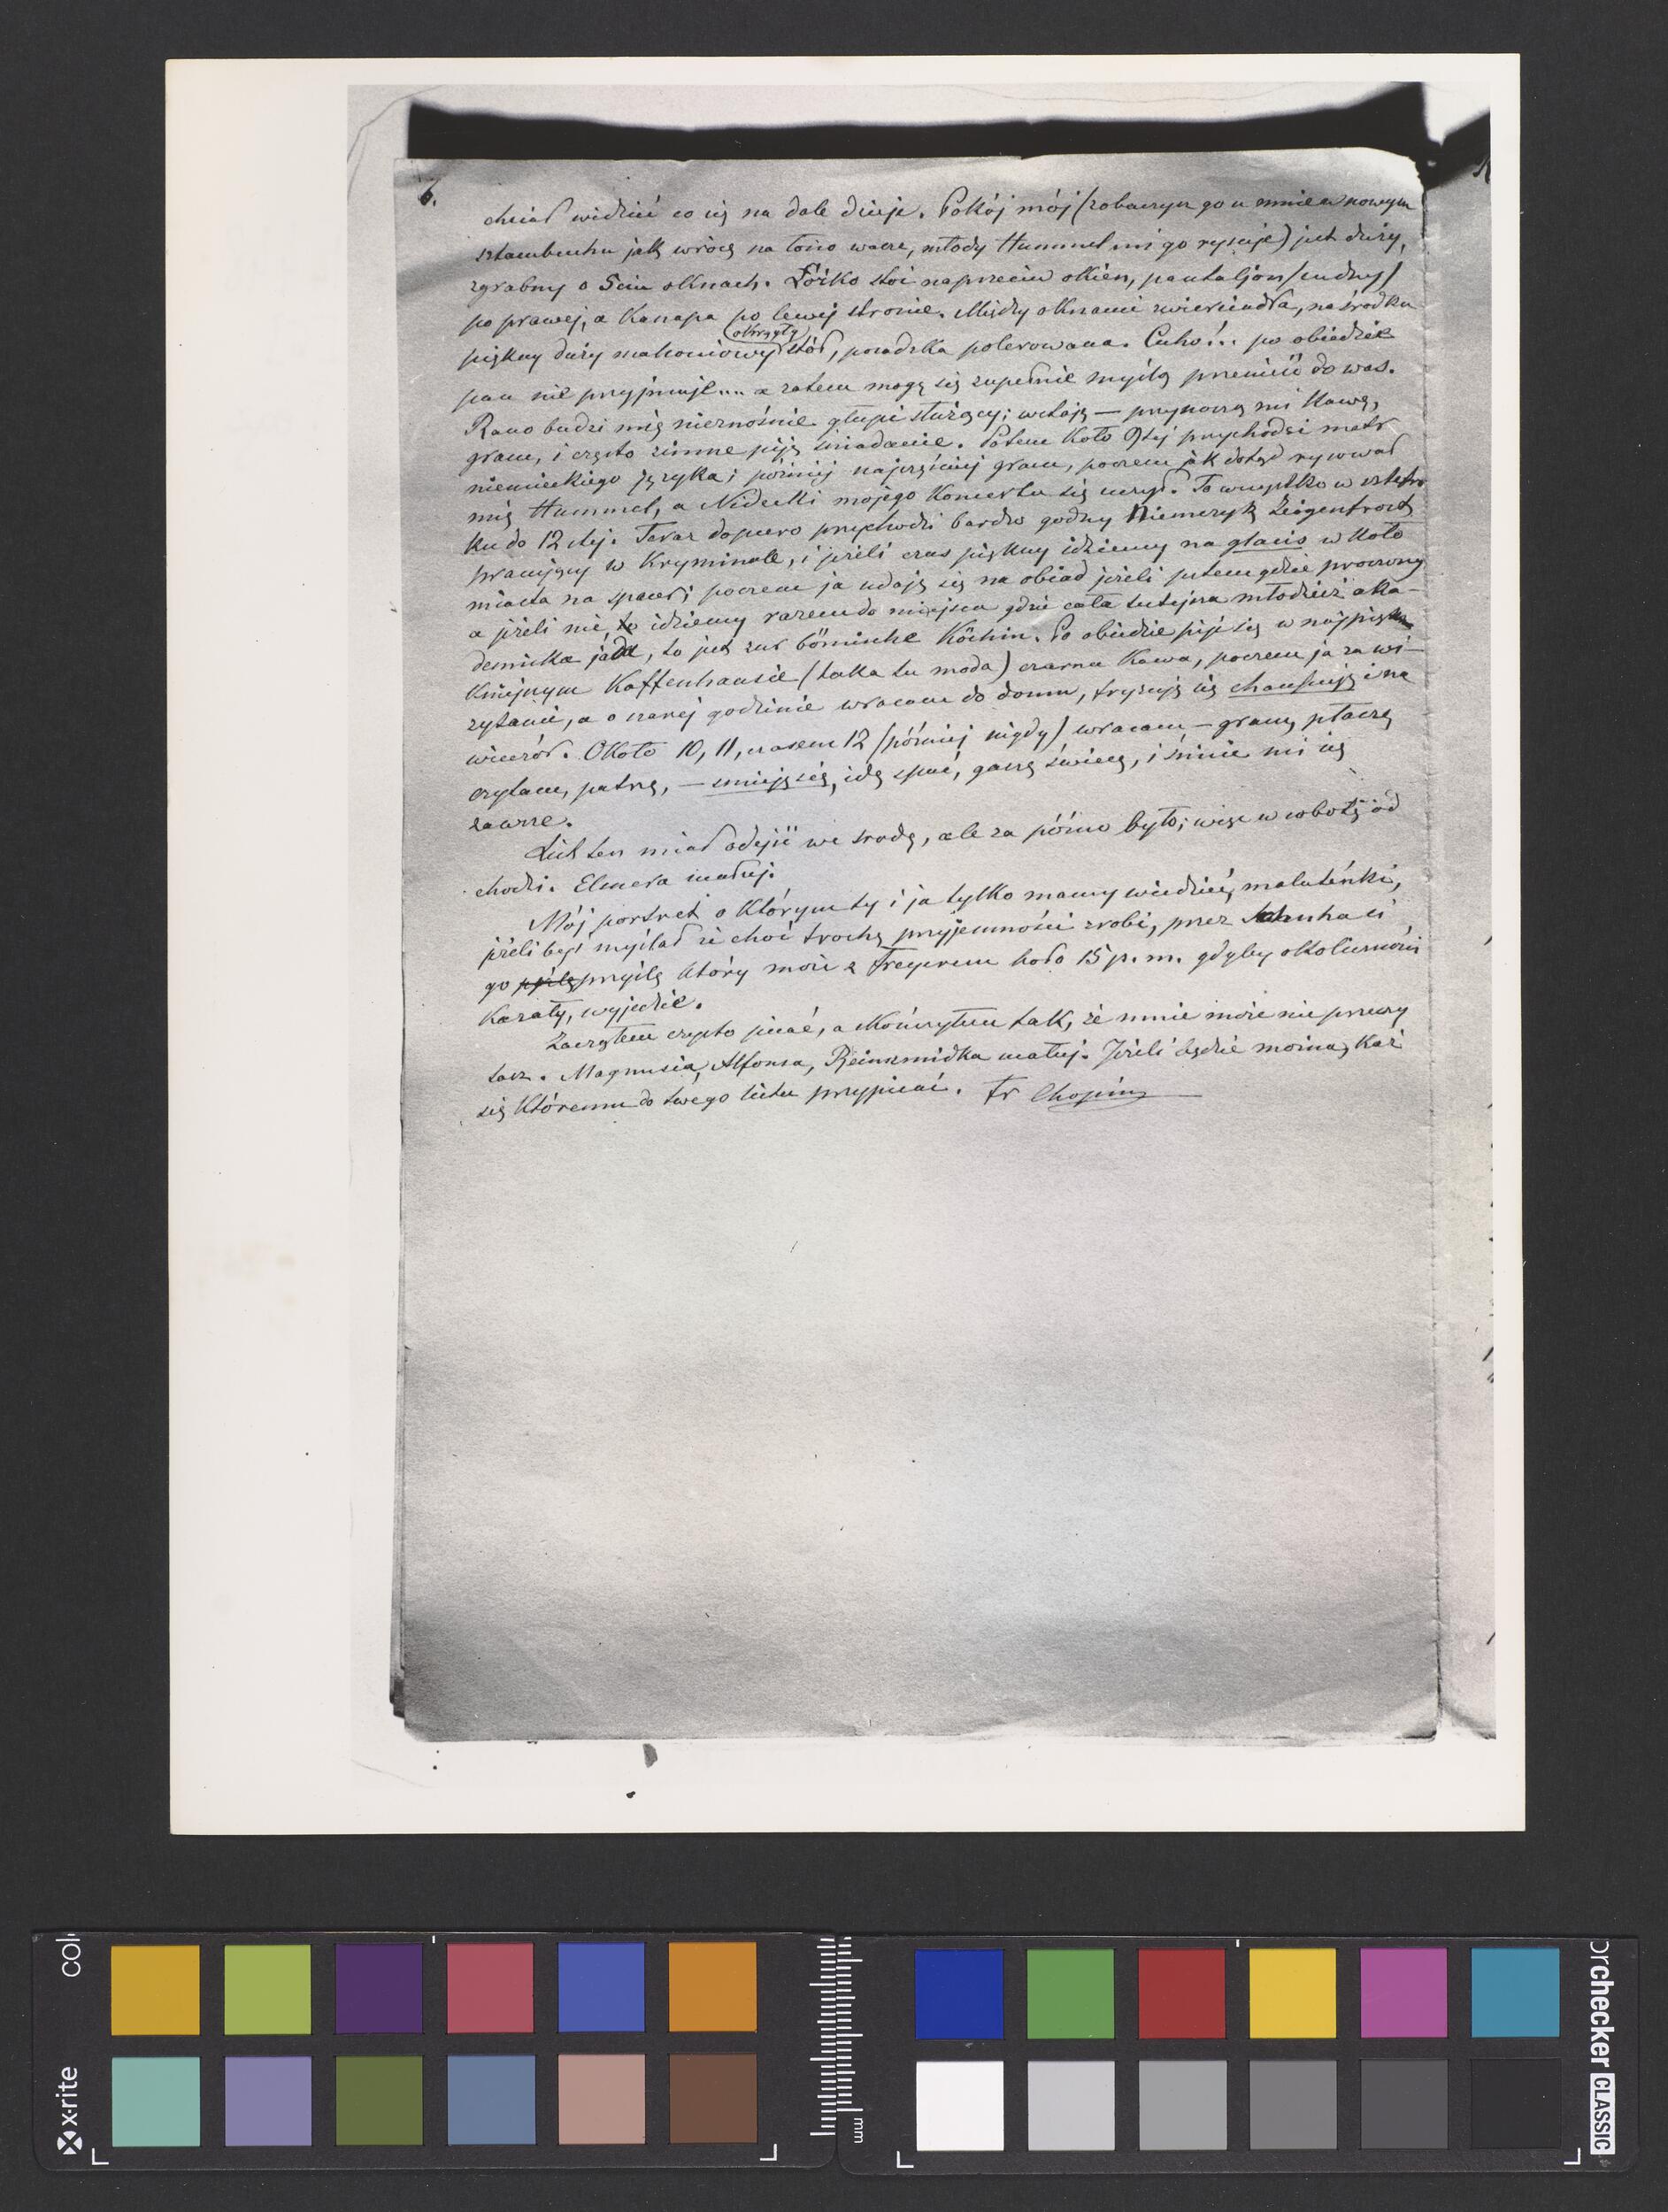 6.
chciał widzieć co się na dole dzieje. Pokój mój (zobaczysz go u mnie w nowym
sztambuchu jak wrócę na łono wasze, młody Hummel mi go rysuje) jest duży,
zgrabny o 3ch oknach. Łóżko stoi naprzeciw okien, pantaljon (cudny)
po prawej, a Kanapa po lewej stronie. Między oknami zwierciadła, na środku
(okrągły)
piękny duży mahoniowy stół, posadzka polerowana. Cicho!.. po obiedzie
pan nie przyjmuje.... a zatem mogę się zupełnie myślą przenieść do was.
Rano budzi mię nieznośnie głupi służący; wstaję — przynoszą mi Kawę,
gram, i często zimne piję śniadanie. Potem Koło 9tej przychodzi metr
niemieckiego języka; później najczęściej gram, poczem jak dotąd rysował
mię Hummel, a Nidecki mojego Koncertu się uczył. To wszystko w szlafro
ku do 12stej. Teraz dopiero przychodzi bardzo godny Niemczyk Leigenfrost
pracujący w Kryminale, i jeżeli czas piękny idziemy na glacis w Koło
miasta na spacer; poczem ja udaję się na obiad jeżeli jestem gdzie proszony
a jeżeli nie to idziemy razem do miejsca gdzie cała tutejsza młodzież aka-
demicka jada, to jest zur böhmische Köchin. Po obiedzie pije się w najpięk
kniejszym Kaffenhausie (taka tu moda) czarna Kawa, poczem ja za wi-
zytami, a o szarej godzinie wracam do domu, fryzuję się chaussuję i na
wieczór. Około 10, 11, czasem 12 (później nigdy) wracam — gram, płaczę
czytam, patrzę, — smieję się, idę spać, gaszę świecę, i śnicie mi się
zawsze.
List ten miał odejść we środę, ale za późno było; więc w sobotę od
chodzi. Elsnera uściskaj.
Mój portret o którym ty i ja tylko mamy wiedzieć, malutéńki,
jeżeli byś myślał że choć trochę przyjemności zrobi, przez Schucha ci
go przyślę który może z Freyerem koło 15 p. m. gdyby okoliczności
kazały, wyjedzie.
Zacząłem czysto pisać, a Kończyłem tak, że mnie może nie przeczy
tasz. Magnusia, Alfonsa, Reinszmidka uściskaj. Jeżeli będzie można, Każ
się któremu do twego listu przypisać. Fr Chopin
x-rite
colorchecker CLASSIC
mm